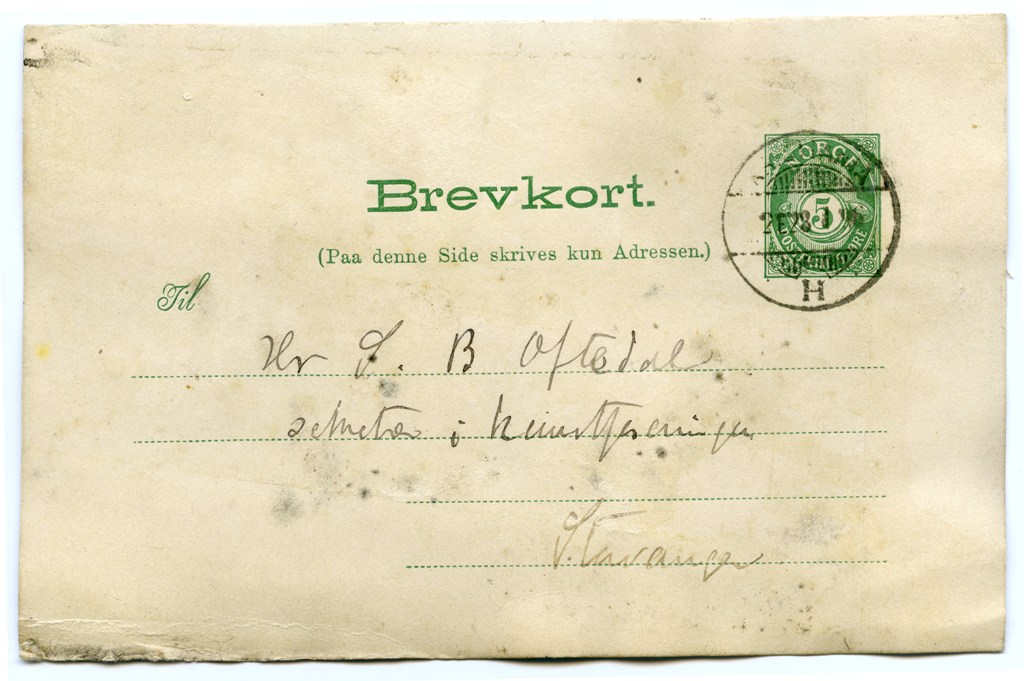 Brevkort.
NORGE
5
(Paa denne Side skrives kun Adressen.)
H
Til
Hr S. B Oftedal
sekretær i Kunstforeningen
Stavanger